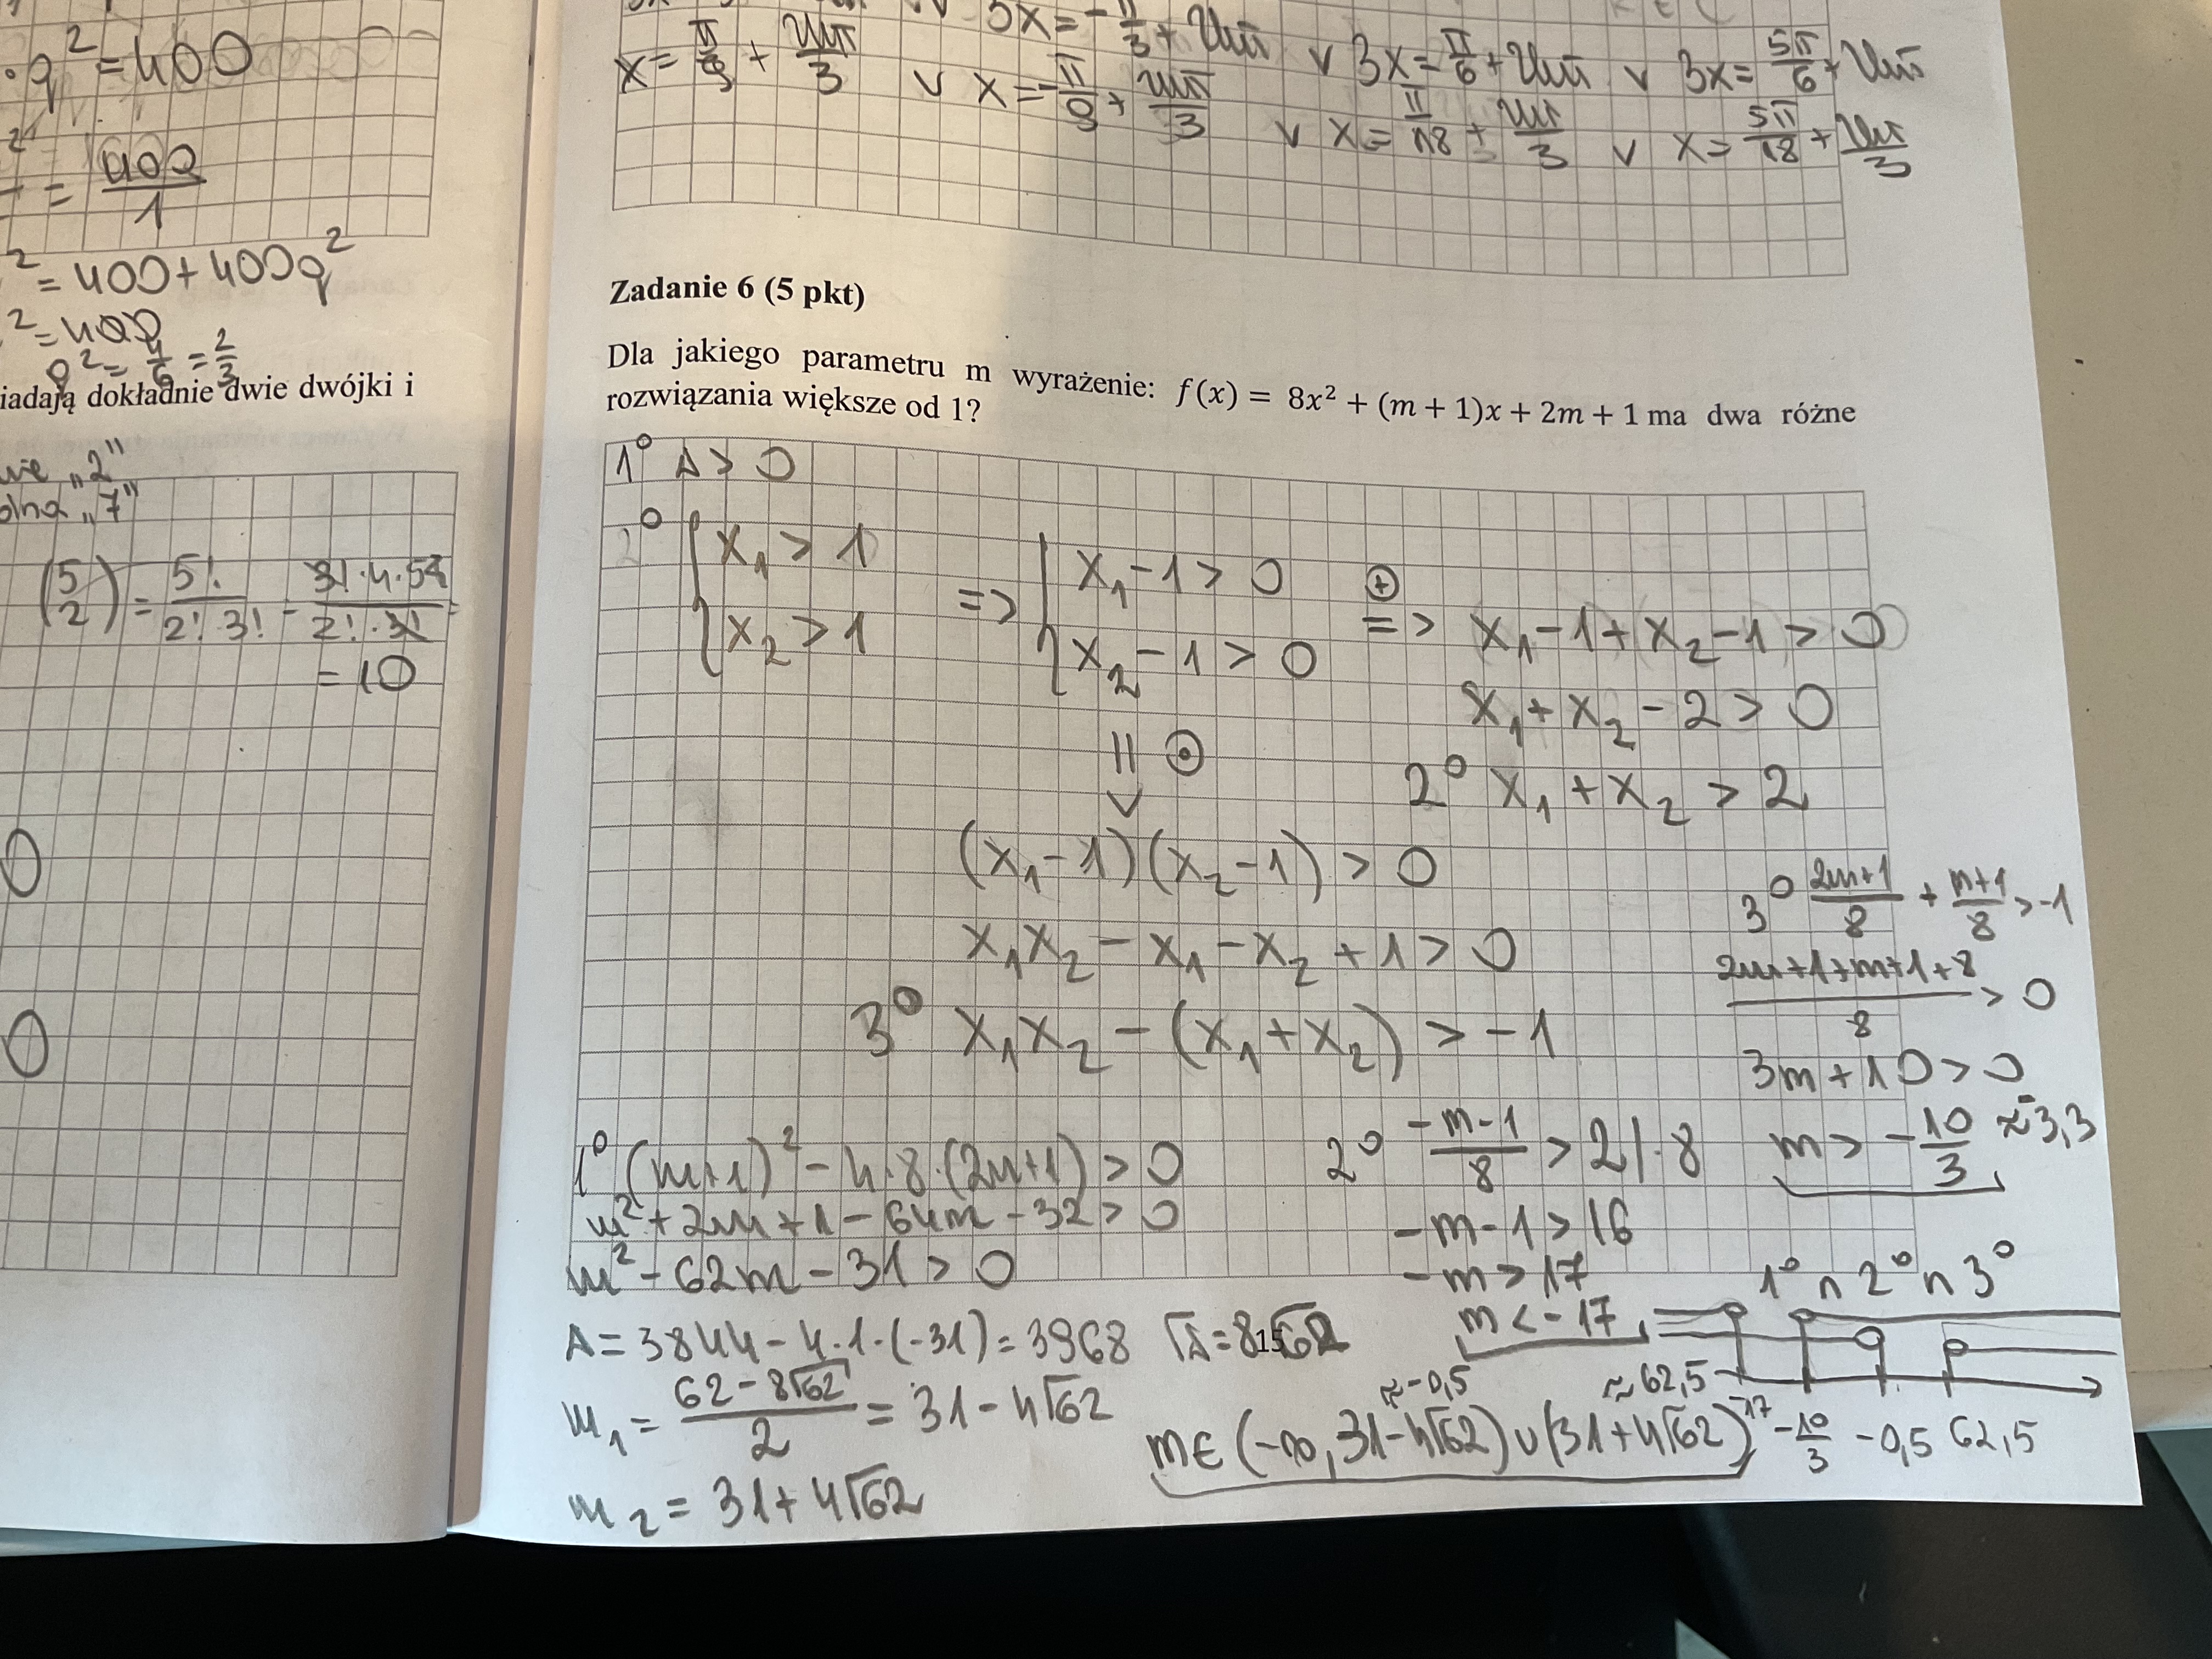 · q² = 400
= 400/1
² = 400 + 400q²
² = 400
q² = 4/6 = 2/3
iadają dokładnie dwie dwójki i
wie „2”
olna „7”
(5 2) = 5!/(2!·3!) = 3!·4·5/(2!·3!) =
= 10
0
0
3x = -π/3 + 2kπ v 3x = π/6 + 2kπ v 3x = 5π/6 + 2kπ
x = π/9 + 2kπ/3 v x = -π/9 + 2kπ/3 v x = π/18 + 2kπ/3 v x = 5π/18 + 2kπ/3
Zadanie 6 (5 pkt)
Dla jakiego parametru m wyrażenie: f(x) = 8x² + (m + 1)x + 2m + 1 ma dwa różne
rozwiązania większe od 1?
1° Δ > 0
2° { x₁ > 1 => { x₁ - 1 > 0 ⊕ => x₁ - 1 + x₂ - 1 > 0
x₂ > 1 x₂ - 1 > 0
x₁ + x₂ - 2 > 0
⊙
2° x₁ + x₂ > 2
(x₁ - 1)(x₂ - 1) > 0
x₁x₂ - x₁ - x₂ + 1 > 0
3° x₁x₂ - (x₁ + x₂) > -1
3° (2m+1)/8 + (m+1)/8 > -1
(2m+1+m+1+8)/8 > 0
3m + 10 > 0
m > -10/3 ≈ -3,3
1° (m+1)² - 4·8·(2m+1) > 0
m² + 2m + 1 - 64m - 32 > 0
m² - 62m - 31 > 0
Δ = 3844 - 4·1·(-31) = 3968 √Δ = 8√62
15
m₁ = (62 - 8√62)/2 = 31 - 4√62
m₂ = 31 + 4√62
2° (-m-1)/8 > 2 |·8
-m - 1 > 16
-m > 17
m < -17
1° ∩ 2° ∩ 3°
≈ -0,5 ≈ 62,5
m ∈ (-∞, 31 - 4√62) ∪ (31 + 4√62)
-17 -10/3 -0,5 62,5